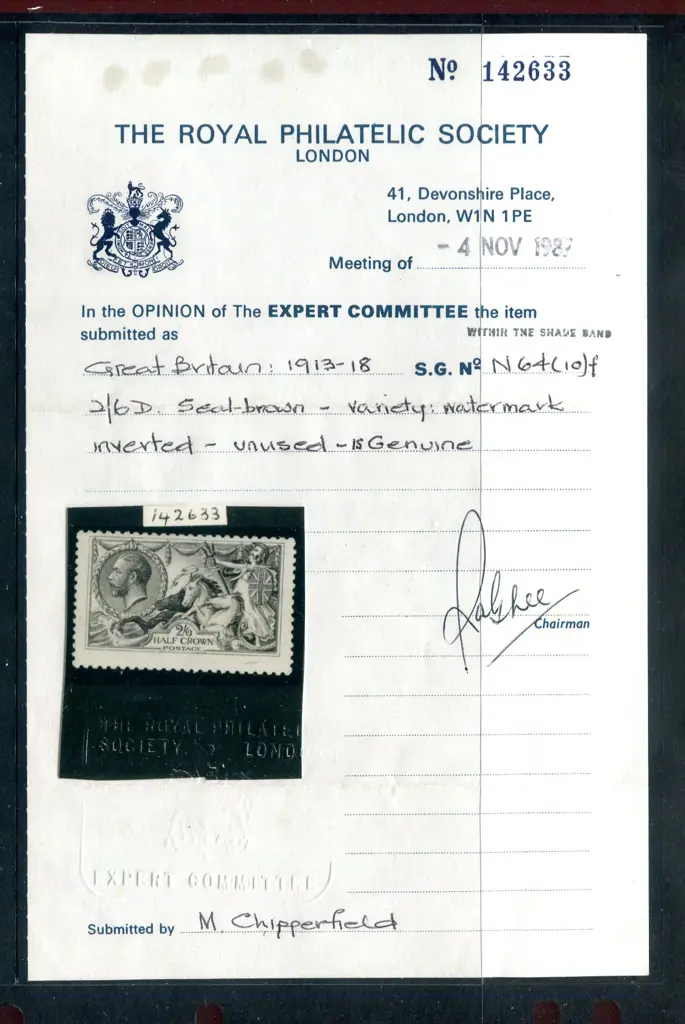 Nº 142633
THE ROYAL PHILATELIC SOCIETY
LONDON
41, Devonshire Place,
London, W1N 1PE
Meeting of - 4 NOV 1987
In the OPINION of The EXPERT COMMITTEE the item
submitted as WITHIN THE SHADE BAND
Great Britain: 1913-18 S.G. Nº N64(10)f
2/6D. Seal-brown - variety: watermark
inverted - unused - is Genuine
142633
2/6
HALF CROWN
POSTAGE
Chairman
THE ROYAL PHILATEL
SOCIETY. LOND
EXPERT COMMITTEE
Submitted by M. Chipperfield